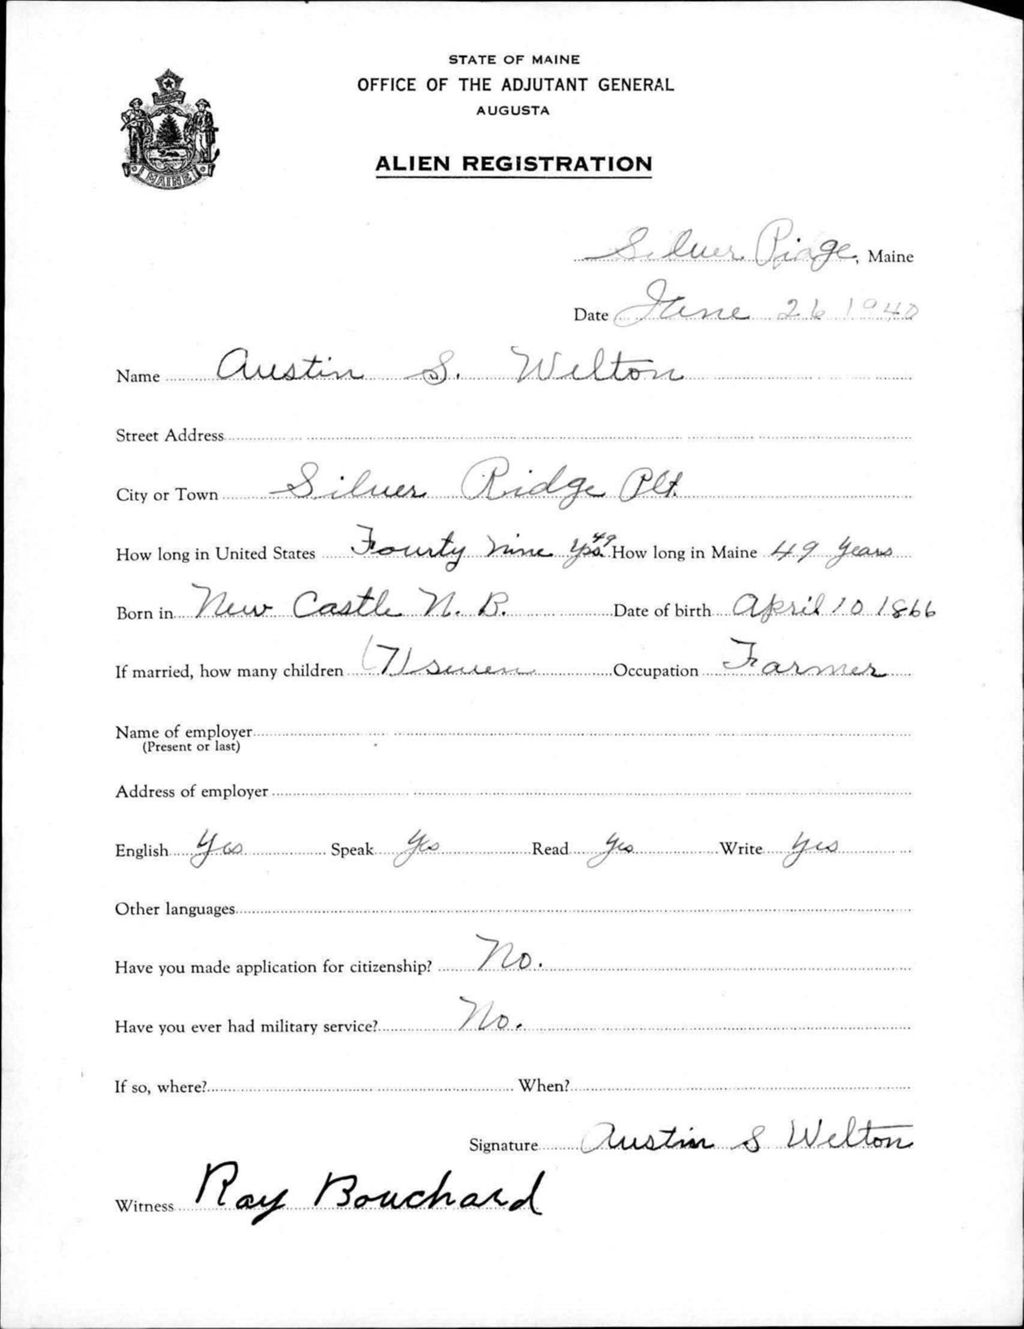 STATE OF MAINE
OFFICE OF THE ADJUTANT GENERAL
AUGUSTA
ALIEN REGISTRATION
MAINE
Silver Ridge, Maine
Date June 26 1940
Name Austin S. Welton
Street Address
City or Town Silver Ridge Plt.
How long in United States Fourty nine yrs 49 How long in Maine 49 years
Born in New Castle N. B. Date of birth April 10 1866
If married, how many children (7) seven Occupation Farmer
Name of employer
(Present or last)
Address of employer
English Yes Speak Yes Read Yes Write Yes
Other languages
Have you made application for citizenship? No.
Have you ever had military service? No.
If so, where? When?
Signature Austin S Welton
Witness Ray Bouchard